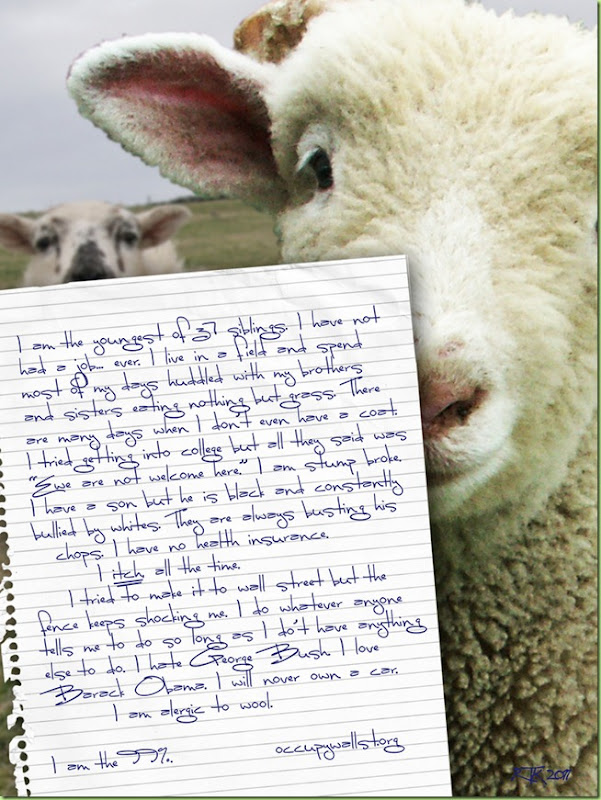 I am the youngest of 37 siblings. I have not
had a job... ever. I live in a field and spend
most of my days huddled with my brothers
and sisters eating nothing but grass. There
are many days when I don't even have a coat.
I tried getting into college but all they said was
"Ewe are not welcome here." I am stump broke.
I have a son but he is black and constantly
bullied by whites. They are always busting his
chops. I have no health insurance.
I itch all the time.
I tried to make it to wall street but the
fence keeps shocking me. I do whatever anyone
tells me to do so long as I do't have anything
else to do. I hate George Bush. I love
Barack Obama. I will never own a car.
I am alergic to wool.
I am the 99%.
occupywallst.org
2011